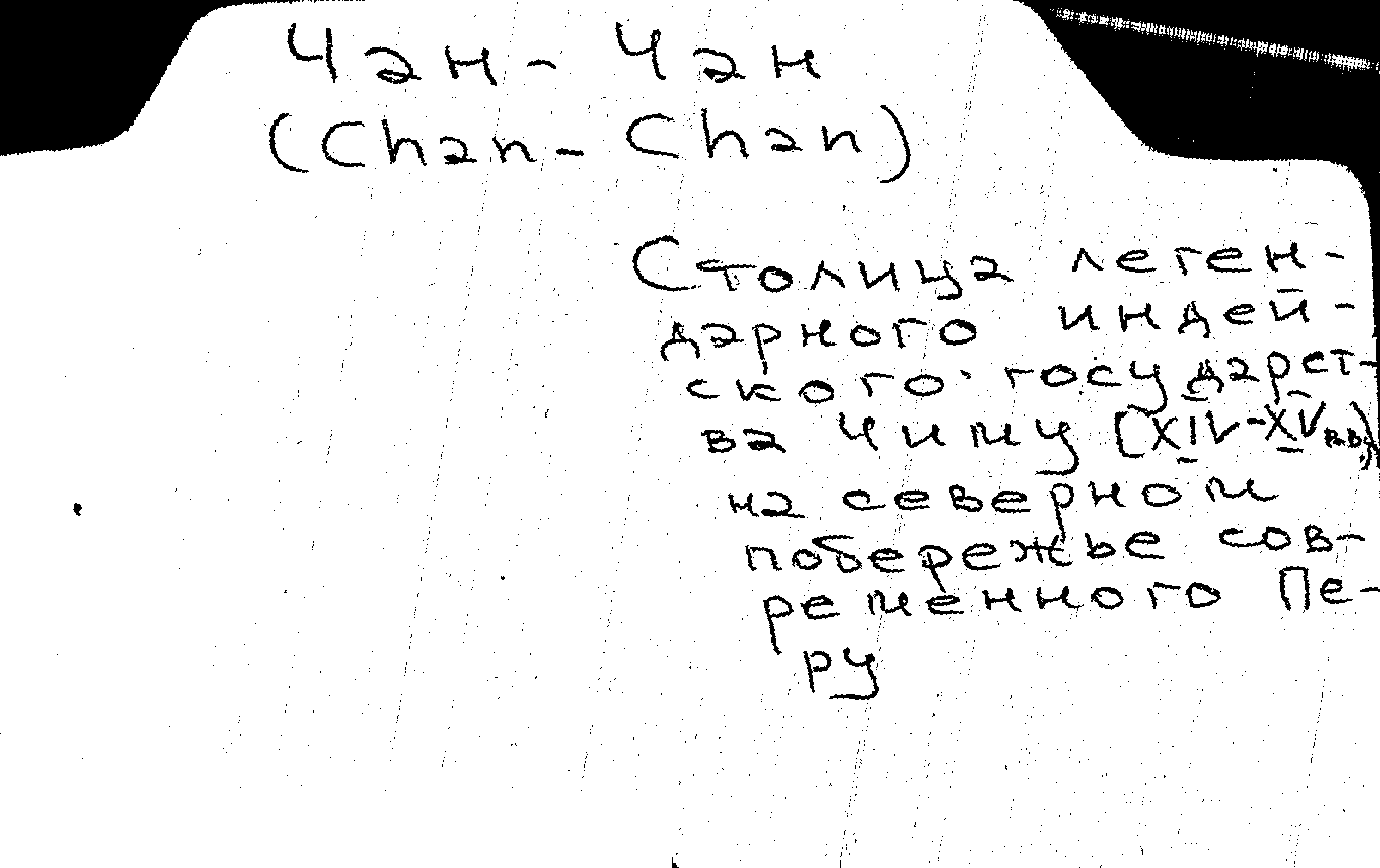 Чан-Чан
(Chan-Chan)
Столица леген-
дарного индей-
ского государст-
ва Чиму (XIV-XV вв.)
на северном
побережье сов-
ременного Пе-
ру